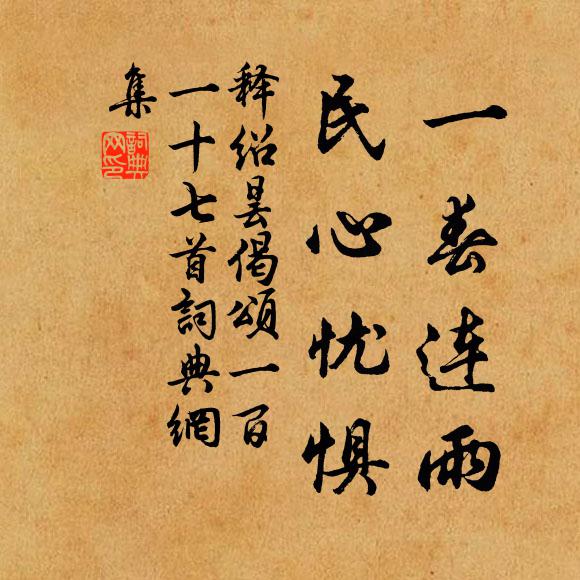 一春连雨
民心忧惧
释绍昙偈颂一百
一十七首詞典網
集
詞典
网印